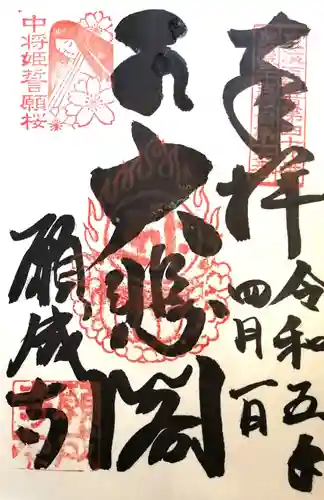 奉拝
令和五年
四月一日
大悲閣
中将姫誓願桜
願成寺